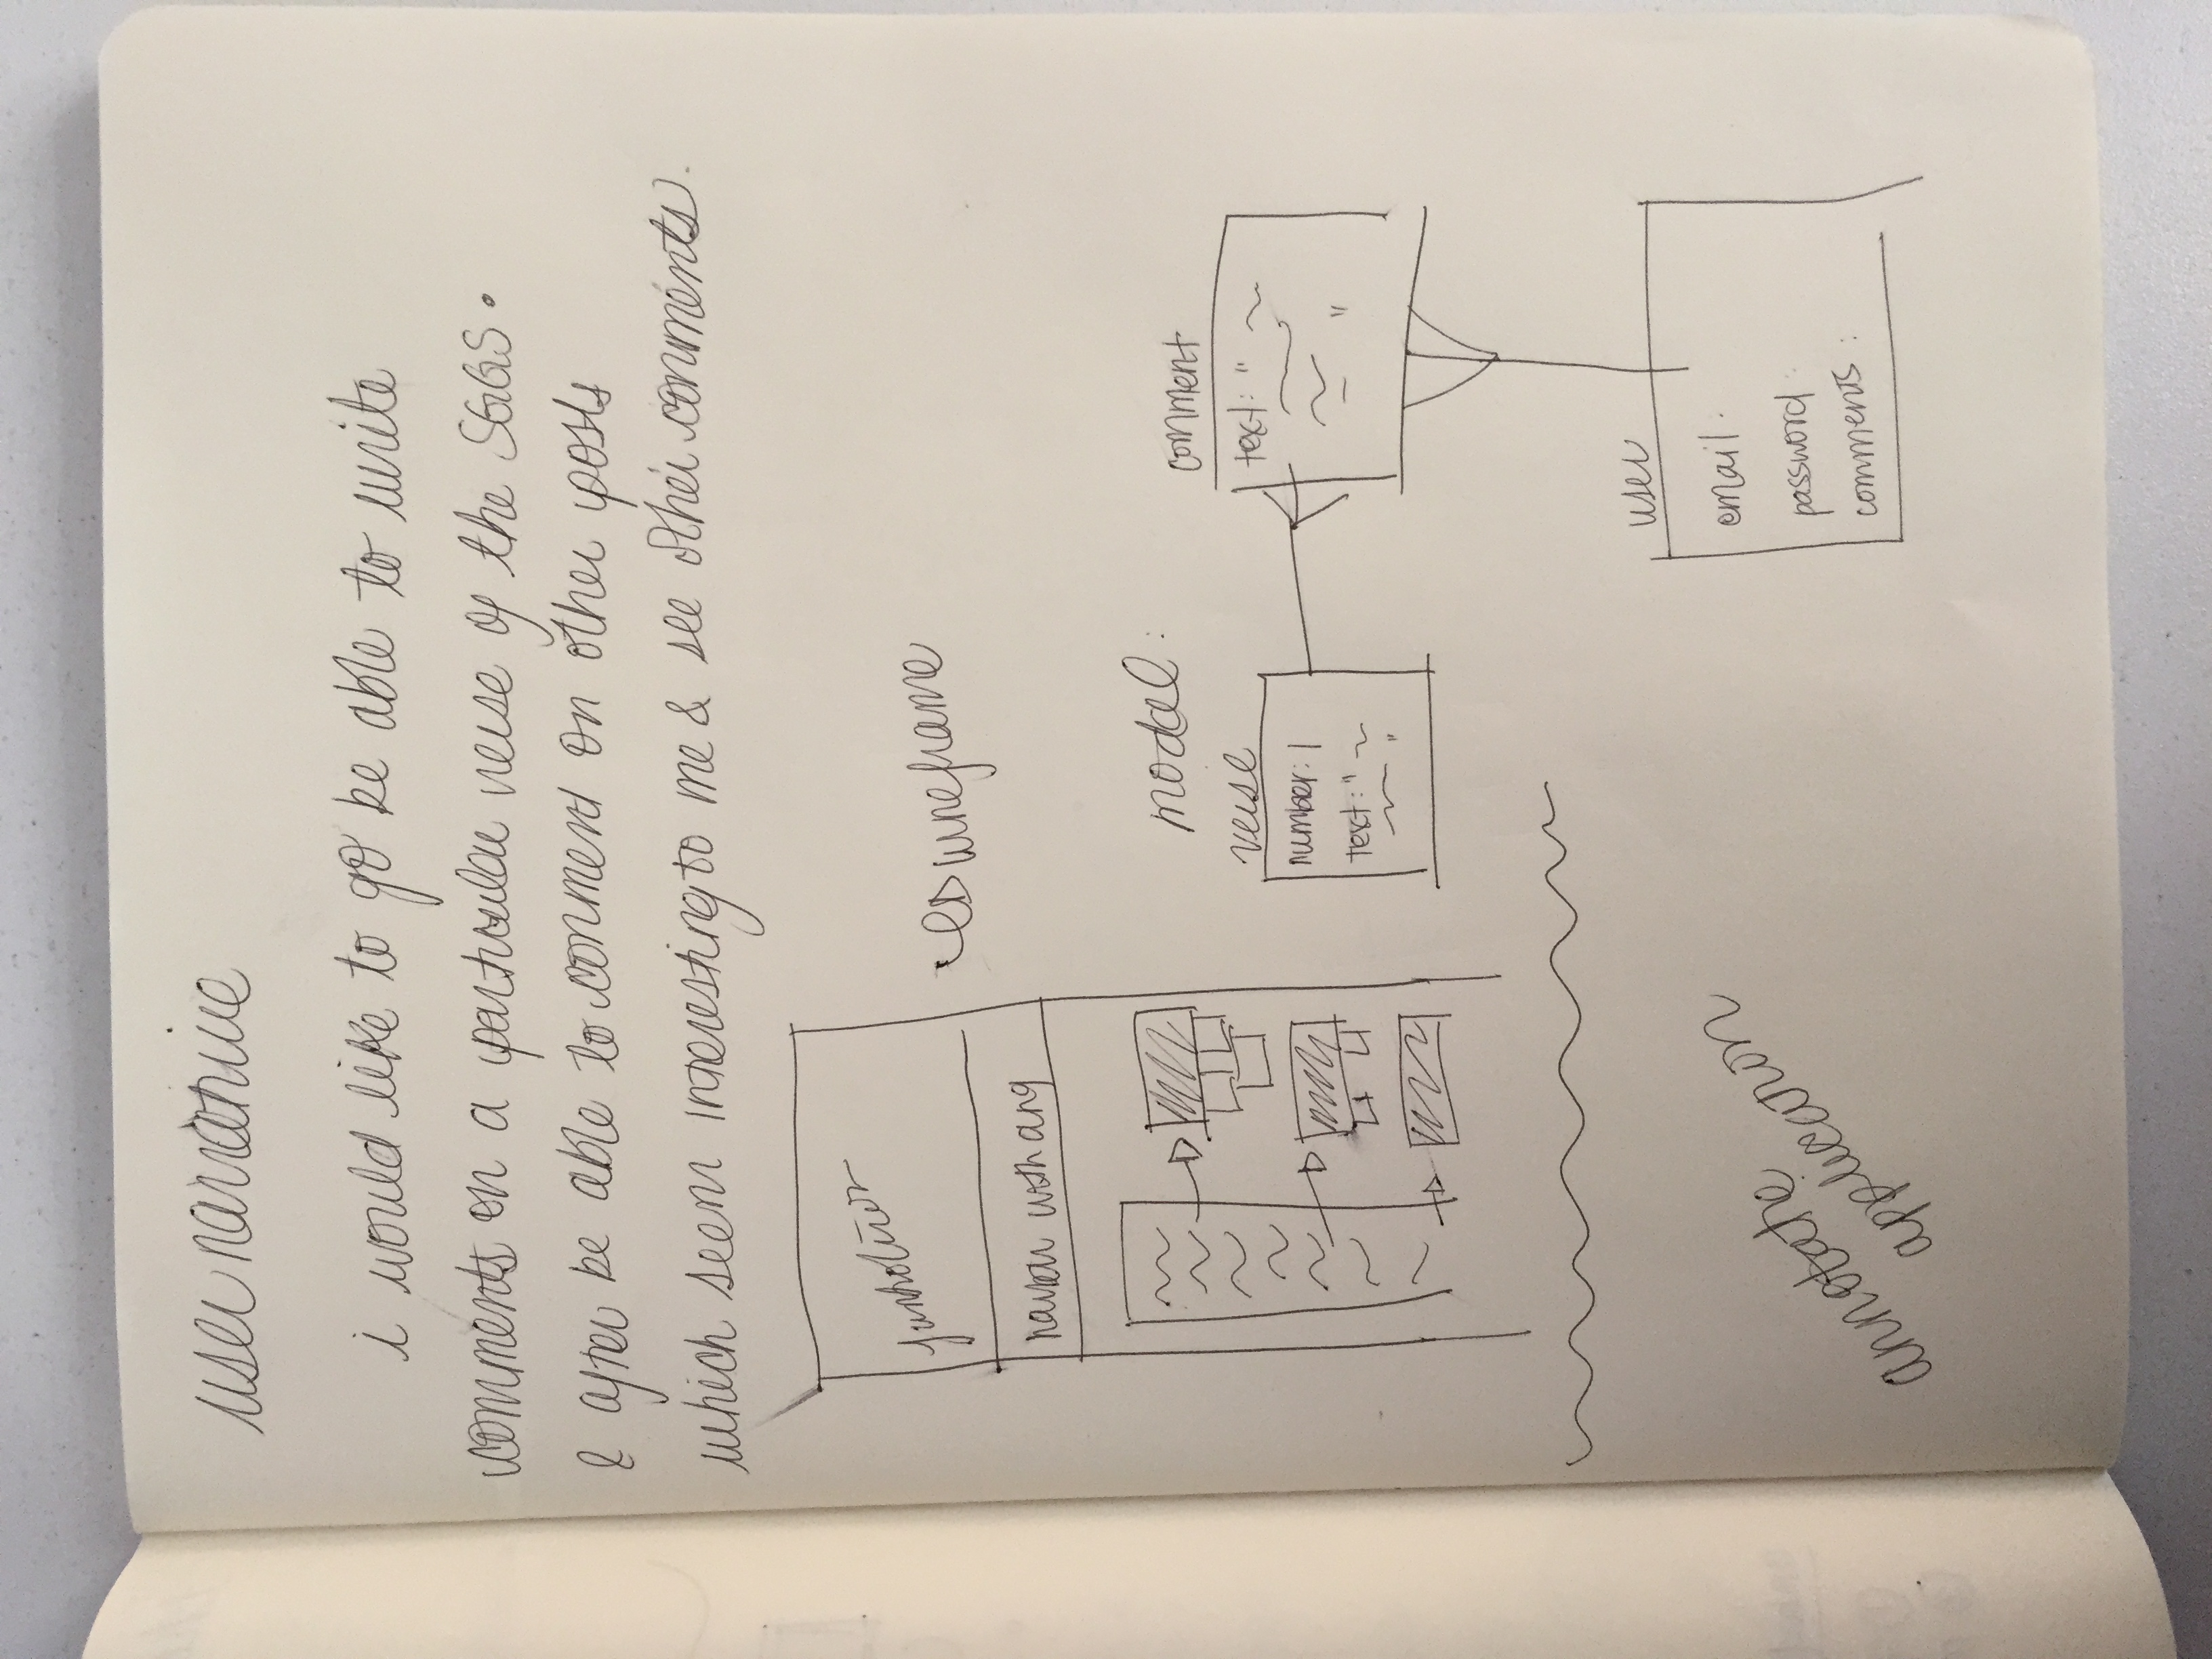 user narrative
i would like to go be able to write
comments on a particular verse of the SGGS.
& after be able to comment on other posts
which seem interesting to me & see other comments.
wireframe
navbar with ang
model:
verse
number: 1
text: "
"
comment
text: "
"
user
email:
password:
comments:
annotate
application